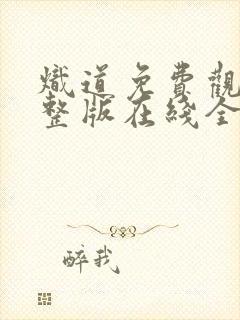 熾道免費觀
整版在綫全
醉我